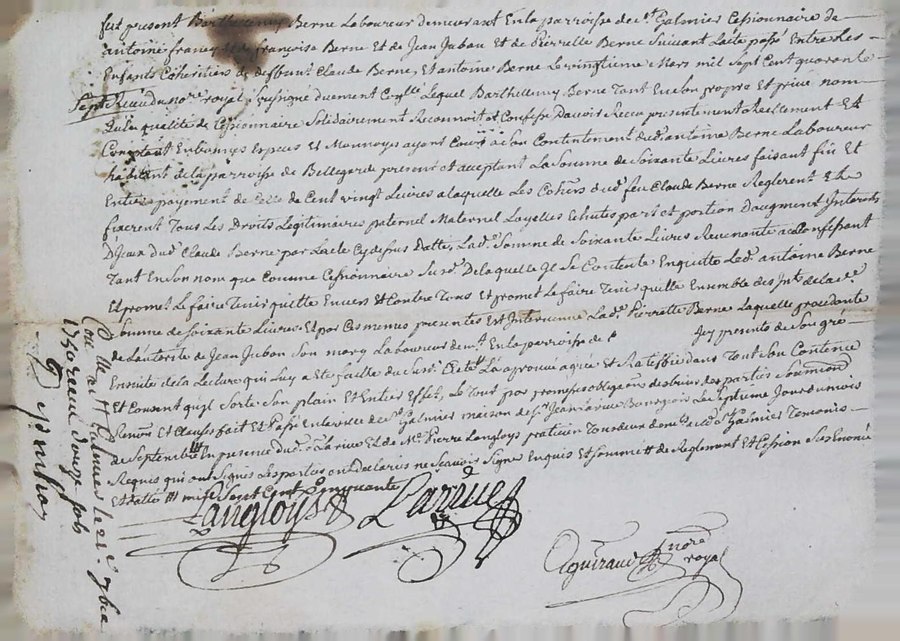 fut présent Barthelemy Berne Laboureur demeurant En la parroisse de st Galmier Cessionnaire de
antoine françois et de françoise Berne Et de Jean Juban Et de Pierrette Berne Suivant Lacte passé Entre Les
Enfants Cohéritiers de deffunt Claude Berne, Et antoine Berne Le vingtieme Mars mil Sept Cent quarente
Sept Receu du nore royal Soussigné duement Conlle Lequel Barthelemy Berne Tant En Son propre Et privé nom
qu'en qualité de Cessionnaire Solidairement Reconnoit et Confesse D'avoir Receu presentement Reellement Et
Comptant En bonnes Especes Et Monnoyes ayant Cours a Son Contentement dud. antoine Berne Laboureur
habitant de la parroisse de Bellegarde present et acceptant La Somme de Soixante Livres faisant fin Et
Entier payement de Celle de Cent vingt Livres a laquelle Les Cohers dud. feu Claude Berne Reglerent Et
fixerent Tous Les Droits Legitimaires paternel Maternel Layelles Echutes part et portion D'augment Interets
D'Iceux dud. Claude Berne par Lacte Cy dessus Datté, Lad. Somme de Soixante Livres Revenante aud. Confessant
Tant En Son nom que Comme Cessionnaire Susd. De laquelle Il Se Contente En quitte Led. antoine Berne
Et promet Le faire Tenir quitte Envers Et Contre Tous Et promet Le faire Tenir quitte Ensemble des Ints de lade
Somme de Soixante Livres. Et par Ces memes presentes Est Intervenue Lad. Pierrette Berne Laquelle procedante
de L'autorité de Jean Juban Son mary Laboureur demt En la parroisse de st Icy presents de Son gré
Ensuite de la Lecture qui Luy a Eté faitte du Susd. acte La aprouvé agréé Et Ratiffié dans Tout Son Contenu
Et Consent qu'il Sorte Son plain Et Entier Effet, Le Tout par promesses obligaons des biens des parties Soumissions
Renons Et Clauses fait Et Passé En la ville de St Galmier maison de Sr Jean Larue Bourgeois Le vingtieme Jour du mois
de Septembre En presence dud. Sr Larue Et de Me Pierre Langloys praticien Tondeur demts aud. St Galmier Temoins
Requis qui ont Signé Les parties ont Declarés ne Scavoir Signer Enquis Et Sommés de Reglement Et Cession Sus Enoncé
Est datté mil Sept Cent Cinquante
Langloys Larue
Aguiraud nore
royal
Conllé a St Galmier le 21e 7bre
1750 receu douze sols